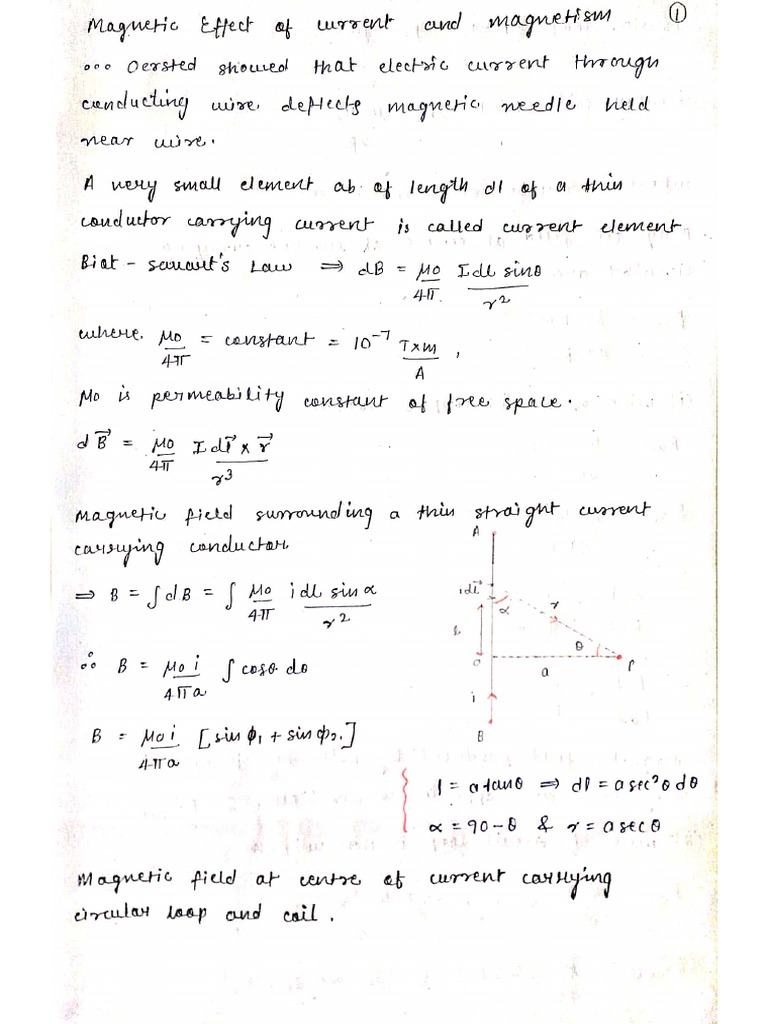 Magnetic Effect of current and magnetism ①
∘∘∘ Oersted showed that electric current through
conducting wire deflects magnetic needle held
near wire.
A very small element ab of length dl of a thin
conductor carrying current is called current element
Biot - Savart's Law ⇒ dB = μ0/4π Idl sinθ/r²
where μ0/4π = constant = 10⁻⁷ T×m/A ,
μ0 is permeability constant of free space.
dB⃗ = μ0/4π Idl⃗ × r⃗/r³
Magnetic field surrounding a thin straight current
carrying conductor.
⇒ B = ∫dB = ∫ μ0/4π idl sinα/r²
∴ B = μ0 i/4πa ∫ cosθ dθ
B = μ0 i/4πa [sin ϕ1 + sin ϕ2.]
A
idl⃗
α
r
l
θ
O
P
a
i
B
l = a tanθ ⇒ dl = a sec²θ dθ
α = 90 - θ & r = a secθ
Magnetic field at centre of current carrying
circular loop and coil.